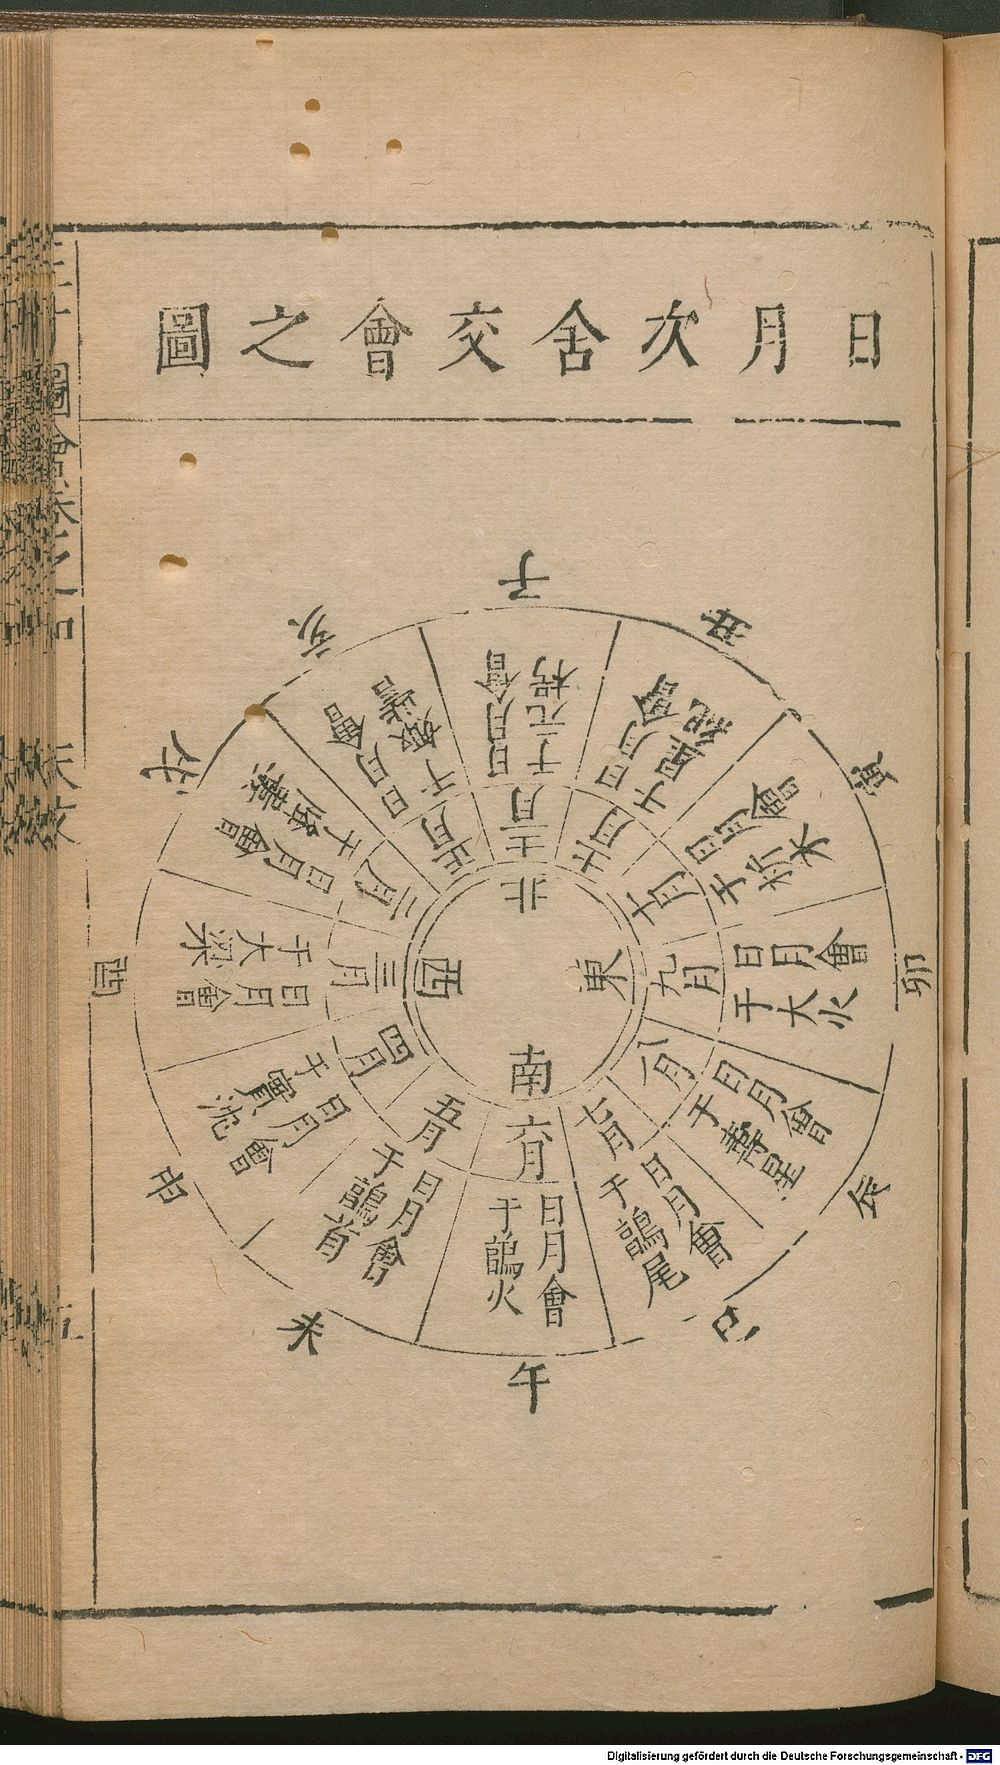 日月次舍交會之圖
子
丑
寅
卯
辰
巳
午
未
申
酉
戌
亥
北
東
南
西
十二月
日月會
于元枵
十一月
日月會
于星紀
十月
日月會
于析木
九月
日月會
于大火
八月
日月會
于壽星
七月
日月會
于鶉尾
六月
日月會
于鶉火
五月
日月會
于鶉首
四月
日月會
于實沈
三月
日月會
于大梁
二月
日月會
于降婁
正月
日月會
圖會卷
天文
五
Digitalisierung gefördert durch die Deutsche Forschungsgemeinschaft - DFG